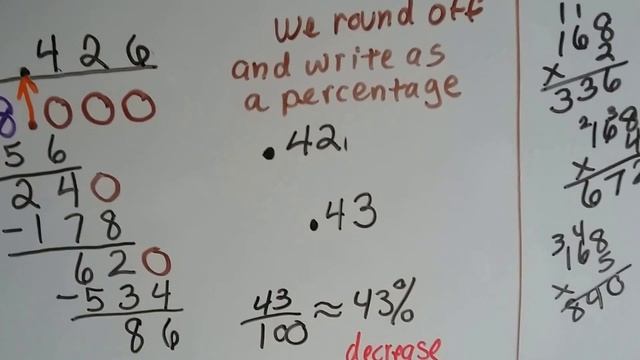 .426
8.000
56
240
-178
620
-534
86
We round off
and write as
a percentage
.42
.43
43
100
≈ 43%
decrease
11
168
x 2
336
2 3
168
x 4
672
3 4
168
x 5
840